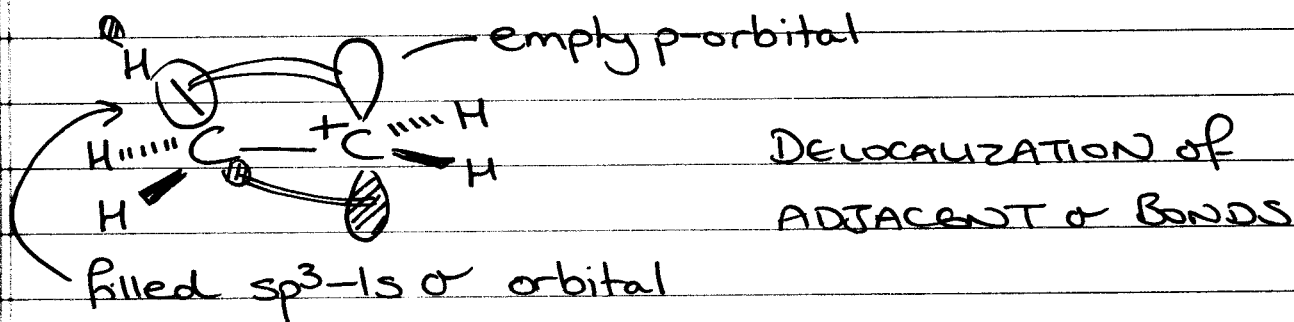 empty p-orbital
H
H C + C H
H H
DELOCALIZATION of
ADJACENT σ BONDS
filled sp³-1s σ orbital